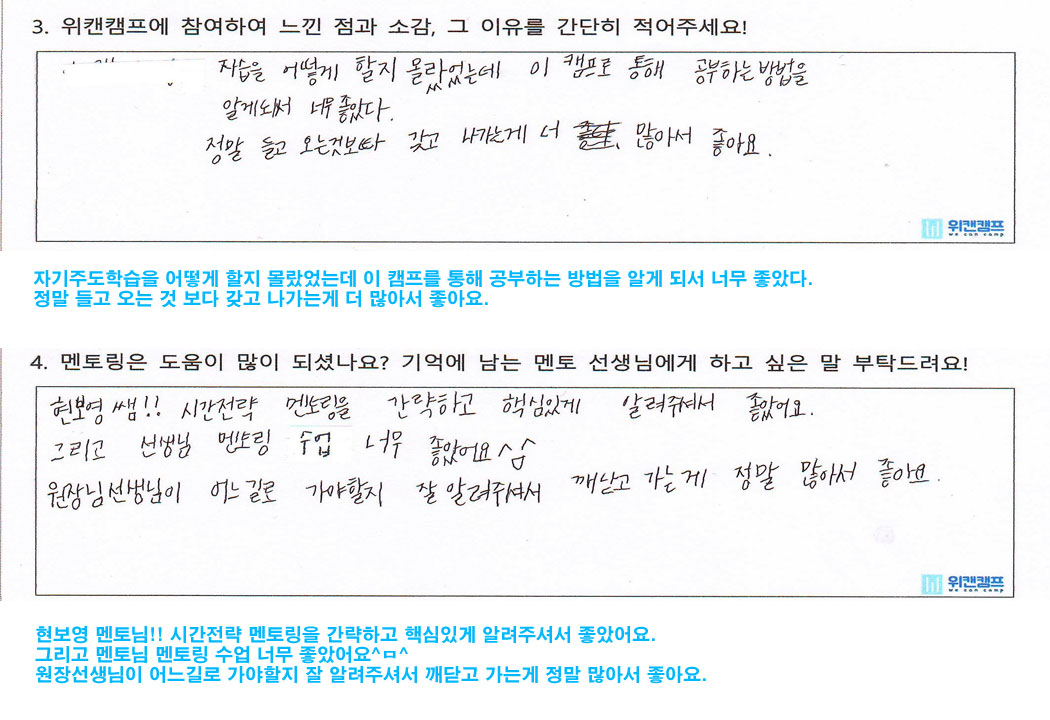 3. 위캔캠프에 참여하여 느낀 점과 소감, 그 이유를 간단히 적어주세요!
자습을 어떻게 할지 몰랐었는데 이 캠프로 통해 공부하는 방법을
알게되서 너무 좋았다.
정말 들고 오는것보다 갖고 나가는게 더 많아서 좋아요.
위캔캠프
we can camp
자기주도학습을 어떻게 할지 몰랐었는데 이 캠프를 통해 공부하는 방법을 알게 되서 너무 좋았다.
정말 들고 오는 것 보다 갖고 나가는게 더 많아서 좋아요.
4. 멘토링은 도움이 많이 되셨나요? 기억에 남는 멘토 선생님에게 하고 싶은 말 부탁드려요!
현보영 쌤!! 시간전략 멘토링을 간략하고 핵심있게 알려주셔서 좋았어요.
그리고 선생님 멘토링 수업 너무 좋았어요^ㅁ^
원장님선생님이 어느길로 가야할지 잘 알려주셔서 깨닫고 가는게 정말 많아서 좋아요.
위캔캠프
we can camp
현보영 멘토님!! 시간전략 멘토링을 간략하고 핵심있게 알려주셔서 좋았어요.
그리고 멘토님 멘토링 수업 너무 좋았어요^ㅁ^
원장선생님이 어느길로 가야할지 잘 알려주셔서 깨닫고 가는게 정말 많아서 좋아요.